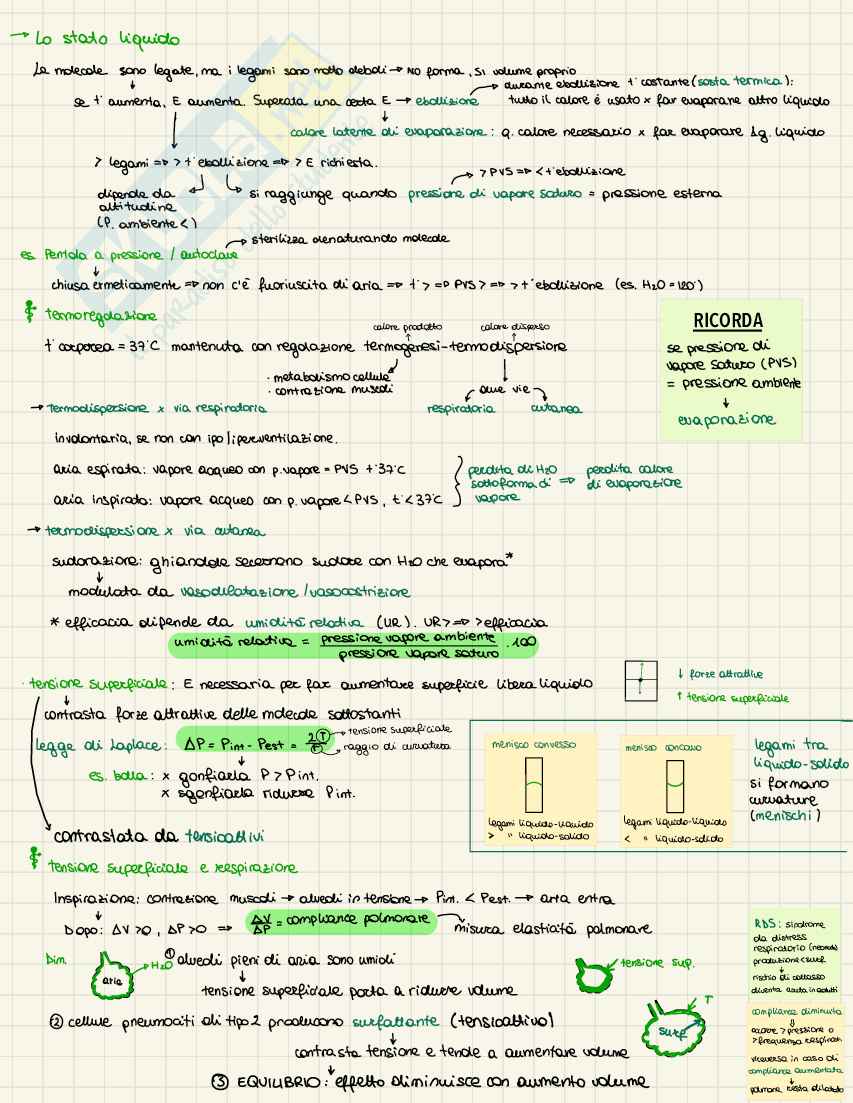 → Lo stato liquido
Le molecole sono legate, ma i legami sono molto deboli → NO forma, SI volume proprio
durante ebollizione t° costante (sosta termica):
se t° aumenta, E aumenta. Superata una certa E → ebollizione
tutto il calore è usato x far evaporare altro liquido
calore latente di evaporazione: q. calore necessario x far evaporare 1g. liquido
> legami => > t° ebollizione => > E richiesta.
> PVS => < t° ebollizione
dipende da altitudine (P. ambiente <)
si raggiunge quando pressione di vapore saturo = pressione esterna
sterilizza denaturando molecole
es. Pentola a pressione / autoclave
chiusa ermeticamente => non c'è fuoriuscita di aria => t° > => PVS > => > t° ebollizione (es. H2O = 120°)
termoregolazione
calore prodotto
calore disperso
t° corporea = 37°C mantenuta con regolazione termogenesi-termodispersione
· metabolismo cellule
· contrazione muscoli
due vie
respiratoria
cutanea
RICORDA
se pressione di
vapore saturo (PVS)
= pressione ambiente
↓
evaporazione
→ termodispersione x via respiratoria
involontaria, se non con ipo/iperventilazione.
aria espirata: vapore acqueo con p. vapore = PVS t° 37°C
aria inspirata: vapore acqueo con p. vapore < PVS, t° < 37°C
perdita di H2O
sottoforma di
vapore
=> perdita calore
di evaporazione
→ termodispersione x via cutanea
sudorazione: ghiandole secernono sudore con H2O che evapora*
modulata da vasodilatazione / vasocostrizione
* efficacia dipende da umidità relativa (UR). UR > => > efficacia
umidità relativa = pressione vapore ambiente / pressione vapore saturo · 100
· tensione superficiale: E necessaria per far aumentare superficie libera liquido
↓ forze attrattive
↑ tensione superficiale
contrasta forze attrattive delle molecole sottostanti
legge di Laplace: ΔP = Pint - Pest = 2T / r
→ tensione superficiale
→ raggio di curvatura
es. bolla: x gonfiarla P > Pint.
x sgonfiarla ridurre Pint.
menisco convesso
legami liquido-liquido
> " liquido-solido
menisco concavo
legami liquido-liquido
< " liquido-solido
legami tra
liquido-solido
si formano
curvature
(menischi)
contrastata da tensioattivi
tensione superficiale e respirazione
Inspirazione: contrazione muscoli → alveoli in tensione → Pint. < Pest. → aria entra
Dopo: ΔV > 0, ΔP > 0 => ΔV / ΔP = compliance polmonare
misura elasticità polmonare
Dim.
aria
H2O
① alveoli pieni di aria sono umidi
tensione superficiale porta a ridurre volume
tensione sup.
② cellule pneumociti di tipo 2 producono surfattante (tensioattivo)
contrasta tensione e tende a aumentare volume
T
surf
③ EQUILIBRIO: effetto diminuisce con aumento volume
RDS: sindrome
da distress
respiratorio (neonate)
produzione < surf.
↓
rischio di collasso
diventa acuta in adulti
compliance diminuita
occorre > pressione o
> frequenza respirat.
viceversa in caso di
compliance aumentata
polmone resta dilatato